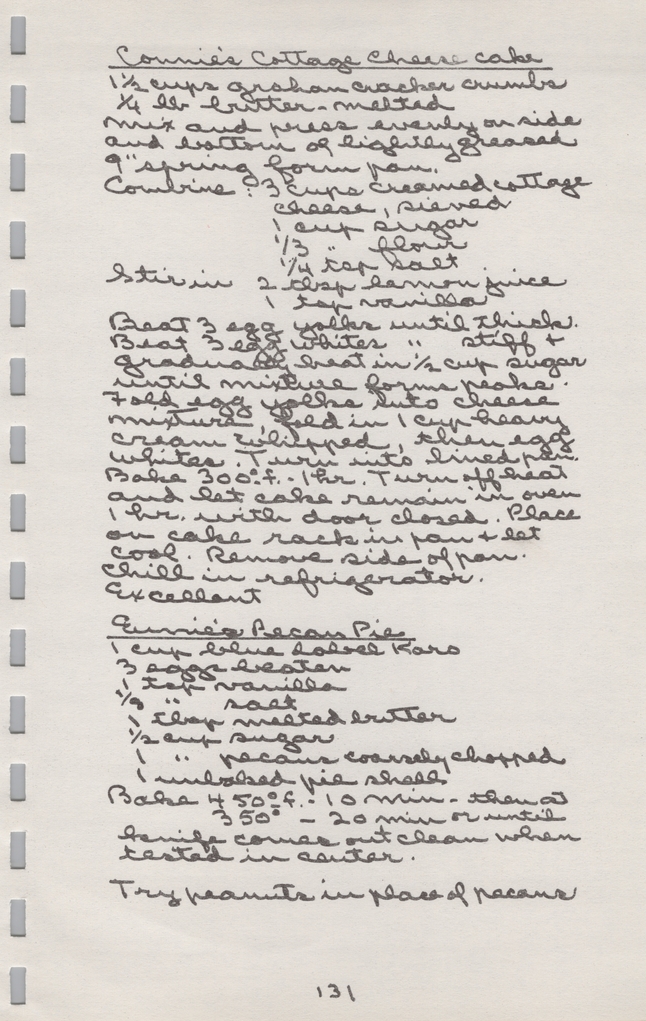 Connie's Cottage Cheese cake
1½ cups graham cracker crumbs
¼ lb butter - melted
Mix and press evenly on side
and bottom of lightly greased
9" spring form pan.
Combine: 3 cups creamed cottage
cheese, sieved
1 cup sugar
1/3 " flour
¼ tsp salt
Stir in 2 tbsp lemon juice
1 tsp vanilla
Beat 3 egg yolks until thick.
Beat 3 egg whites " stiff &
gradually beat in ½ cup sugar
until mixture forms peaks.
Fold egg yolks into cheese
mixture, fold in 1 cup heavy
cream whipped, then egg
whites. Turn into lined pan.
Bake 300°f. - 1 hr. Turn off heat
and let cake remain in oven
1 hr. with door closed. Place
on cake rack in pan & let
cool. Remove side of pan.
Chill in refrigerator.
Excellant
Eunie's Pecan Pie
1 cup blue label Karo
3 eggs beaten
1 tsp vanilla
1/8 " salt
1 tbsp melted butter
½ cup sugar
1 " pecans coarsely chopped
1 unbaked pie shell
Bake 450°f. - 10 min - then at
350° - 20 min or until
knife comes out clean when
tested in center.
Try peanuts in place of pecans
131